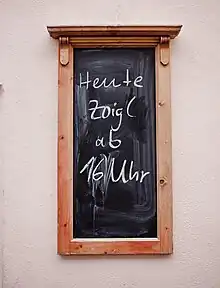 Heute
Zoigl
ab
16 Uhr